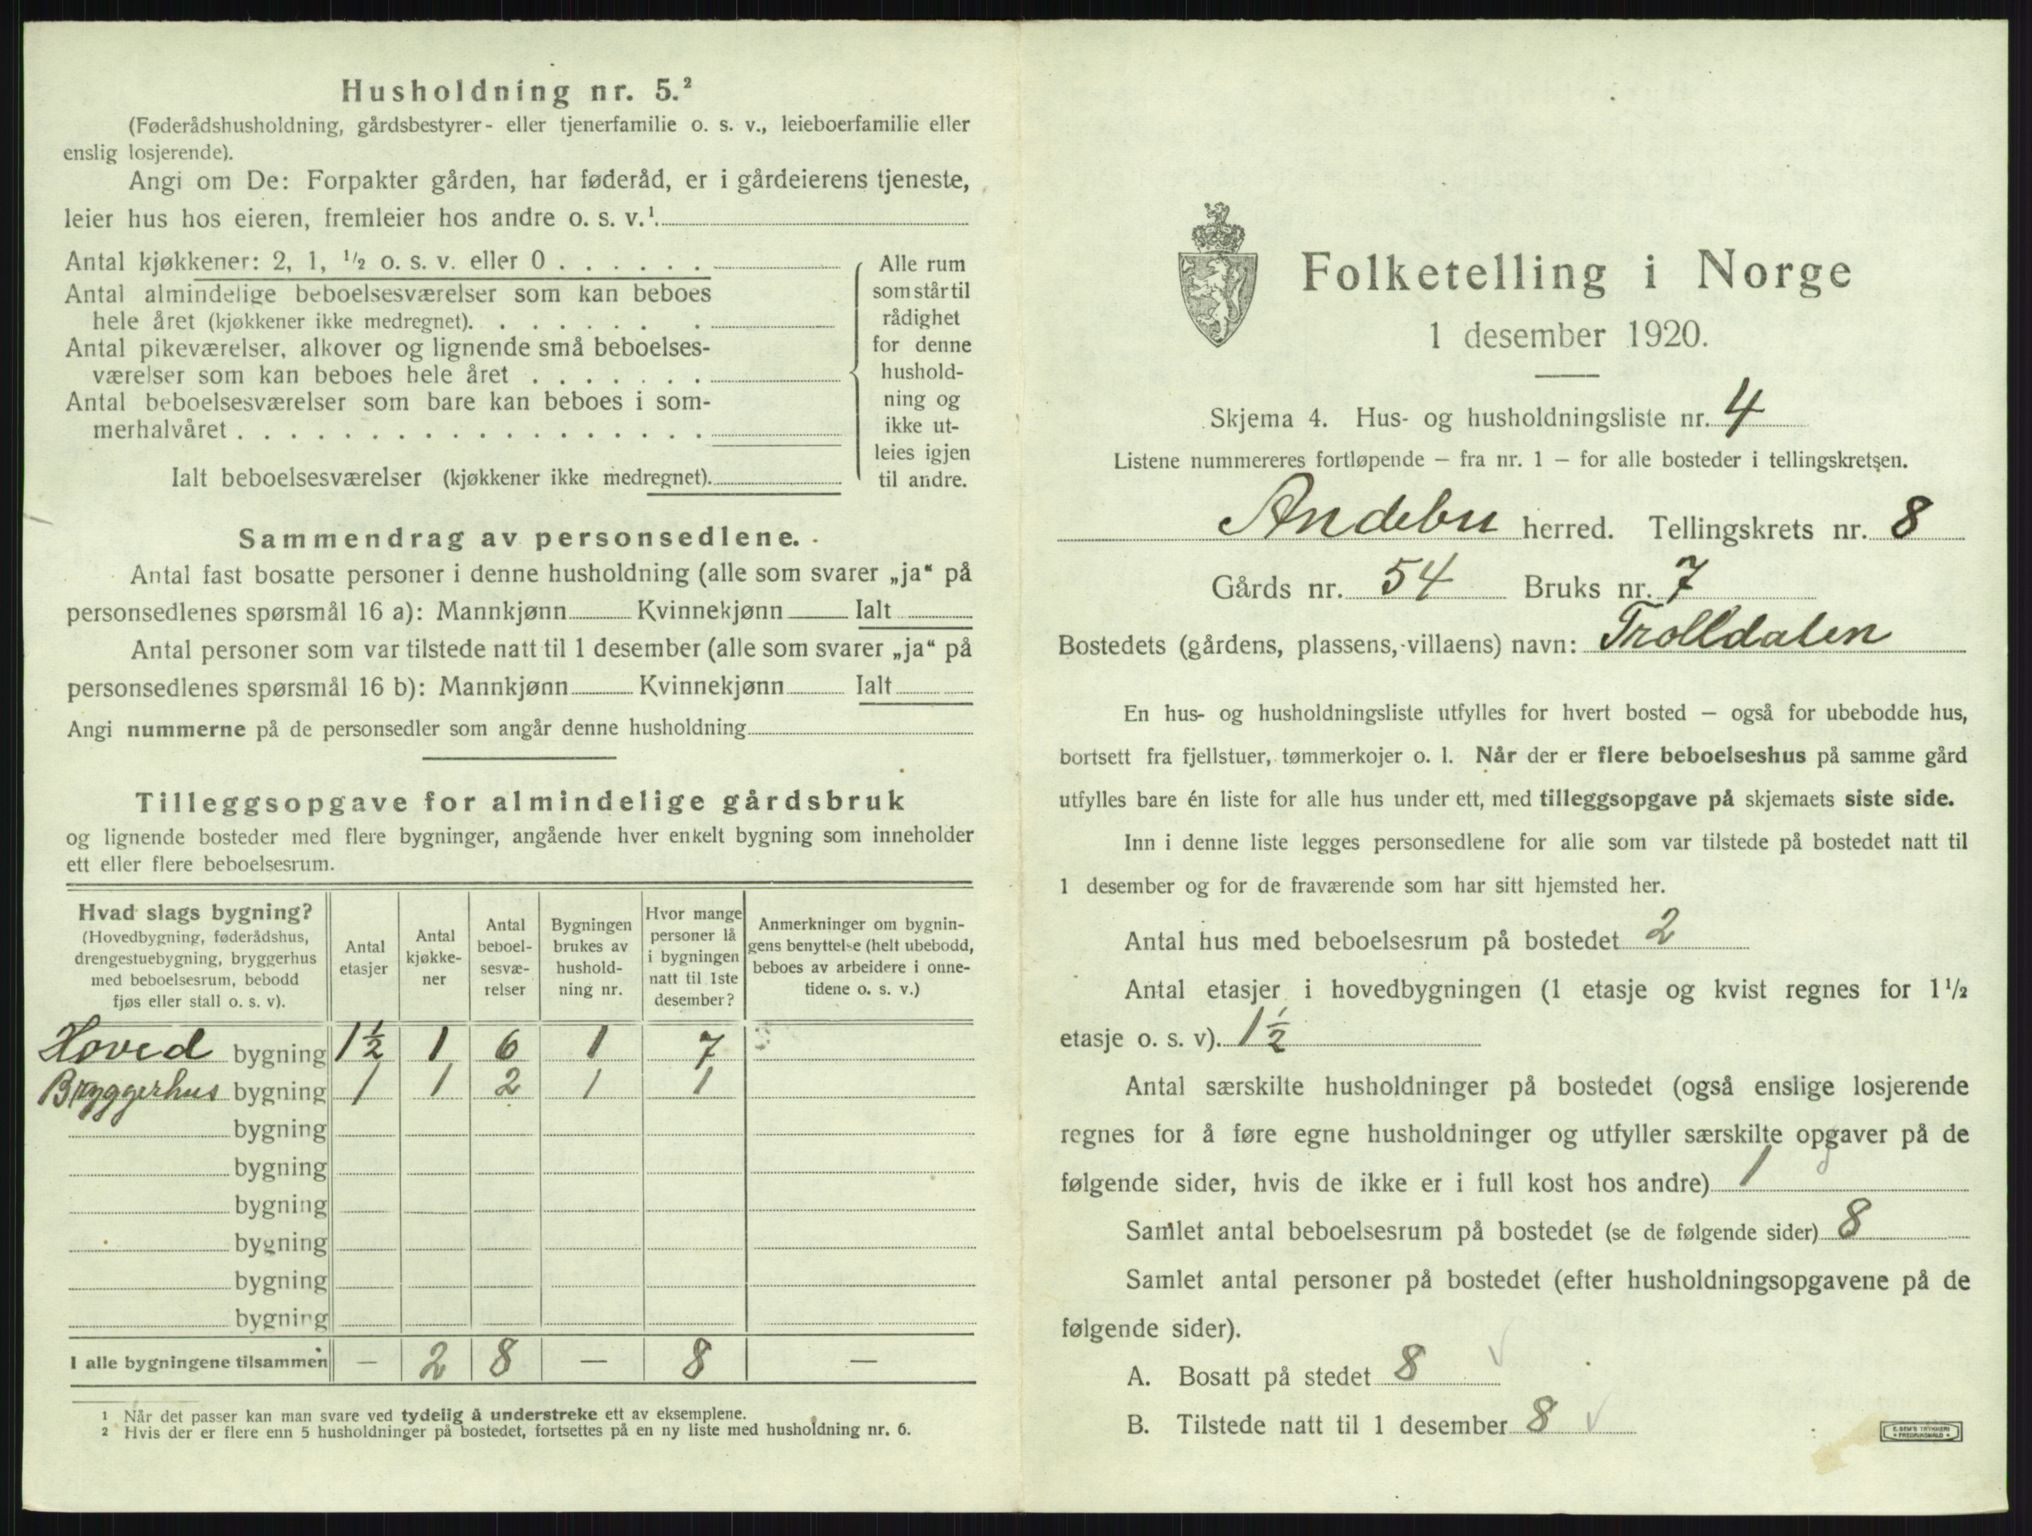 Husholdning nr. 5.²
(Føderådshusholdning, gårdsbestyrer- eller tjenerfamilie o. s. v., leieboerfamilie eller
enslig losjerende).
Angi om De: Forpakter gården, har føderåd, er i gårdeierens tjeneste,
leier hus hos eieren, fremleier hos andre o. s. v.¹
Antal kjøkkener: 2, 1, ½ o. s. v. eller 0 . . . . . .
Antal almindelige beboelsesværelser som kan beboes
hele året (kjøkkener ikke medregnet). . . . . . . .
Antal pikeværelser, alkover og lignende små beboelses-
værelser som kan beboes hele året . . . . . . .
Antal beboelsesværelser som bare kan beboes i som-
merhalvåret . . . . . . . . . . . . . . . . . .
Ialt beboelsesværelser (kjøkkener ikke medregnet).
Alle rum
som står til
rådighet
for denne
hushold-
ning og
ikke ut-
leies igjen
til andre.
Sammendrag av personsedlene.
Antal fast bosatte personer i denne husholdning (alle som svarer „ja“ på
personsedlenes spørsmål 16 a): Mannkjønn Kvinnekjønn Ialt
Antal personer som var tilstede natt til 1 desember (alle som svarer „ja“ på
personsedlenes spørsmål 16 b): Mannkjønn Kvinnekjønn Ialt
Angi nummerne på de personsedler som angår denne husholdning
Tilleggsopgave for almindelige gårdsbruk
og lignende bosteder med flere bygninger, angående hver enkelt bygning som inneholder
ett eller flere beboelsesrum.
Hvad slags bygning?
(Hovedbygning, føderådshus,
drengestuebygning, bryggerhus
med beboelsesrum, bebodd
fjøs eller stall o. s. v).
Antal
etasjer
Antal
kjøkke-
ner
Antal
beboel-
sesvæ-
relser
Bygningen
brukes av
hushold-
ning nr.
Hvor mange
personer lå
i bygningen
natt til 1ste
desember?
Anmerkninger om bygnin-
gens benyttelse (helt ubebodd,
beboes av arbeidere i onne-
tidene o. s. v.)
Hoved bygning 1½ 1 6 1 7
Bryggerhus bygning 1 1 2 1 1
bygning
bygning
bygning
bygning
bygning
bygning
I alle bygningene tilsammen — 2 8 — 8 —
¹ Når det passer kan man svare ved tydelig å understreke ett av eksemplene.
² Hvis der er flere enn 5 husholdninger på bostedet, fortsettes på en ny liste med husholdning nr. 6.
Folketelling i Norge
1 desember 1920.
Skjema 4. Hus- og husholdningsliste nr. 4
Listene nummereres fortløpende — fra nr. 1 — for alle bosteder i tellingskretsen.
Andebu herred. Tellingskrets nr. 8
Gårds nr. 54 Bruks nr. 7
Bostedets (gårdens, plassens, villaens) navn: Trolldalen
En hus- og husholdningsliste utfylles for hvert bosted — også for ubebodde hus,
bortsett fra fjellstuer, tømmerkojer o. l. Når der er flere beboelseshus på samme gård
utfylles bare én liste for alle hus under ett, med tilleggsopgave på skjemaets siste side.
Inn i denne liste legges personsedlene for alle som var tilstede på bostedet natt til
1 desember og for de fraværende som har sitt hjemsted her.
Antal hus med beboelsesrum på bostedet 2
Antal etasjer i hovedbygningen (1 etasje og kvist regnes for 1½
etasje o. s. v). 1½
Antal særskilte husholdninger på bostedet (også enslige losjerende
regnes for å føre egne husholdninger og utfyller særskilte opgaver på de
følgende sider, hvis de ikke er i full kost hos andre) 1
Samlet antal beboelsesrum på bostedet (se de følgende sider) 8
Samlet antal personer på bostedet (efter husholdningsopgavene på de
følgende sider).
A. Bosatt på stedet 8
B. Tilstede natt til 1 desember 8
E. SEM'S TRYKKERI
FREDRIKSHALD